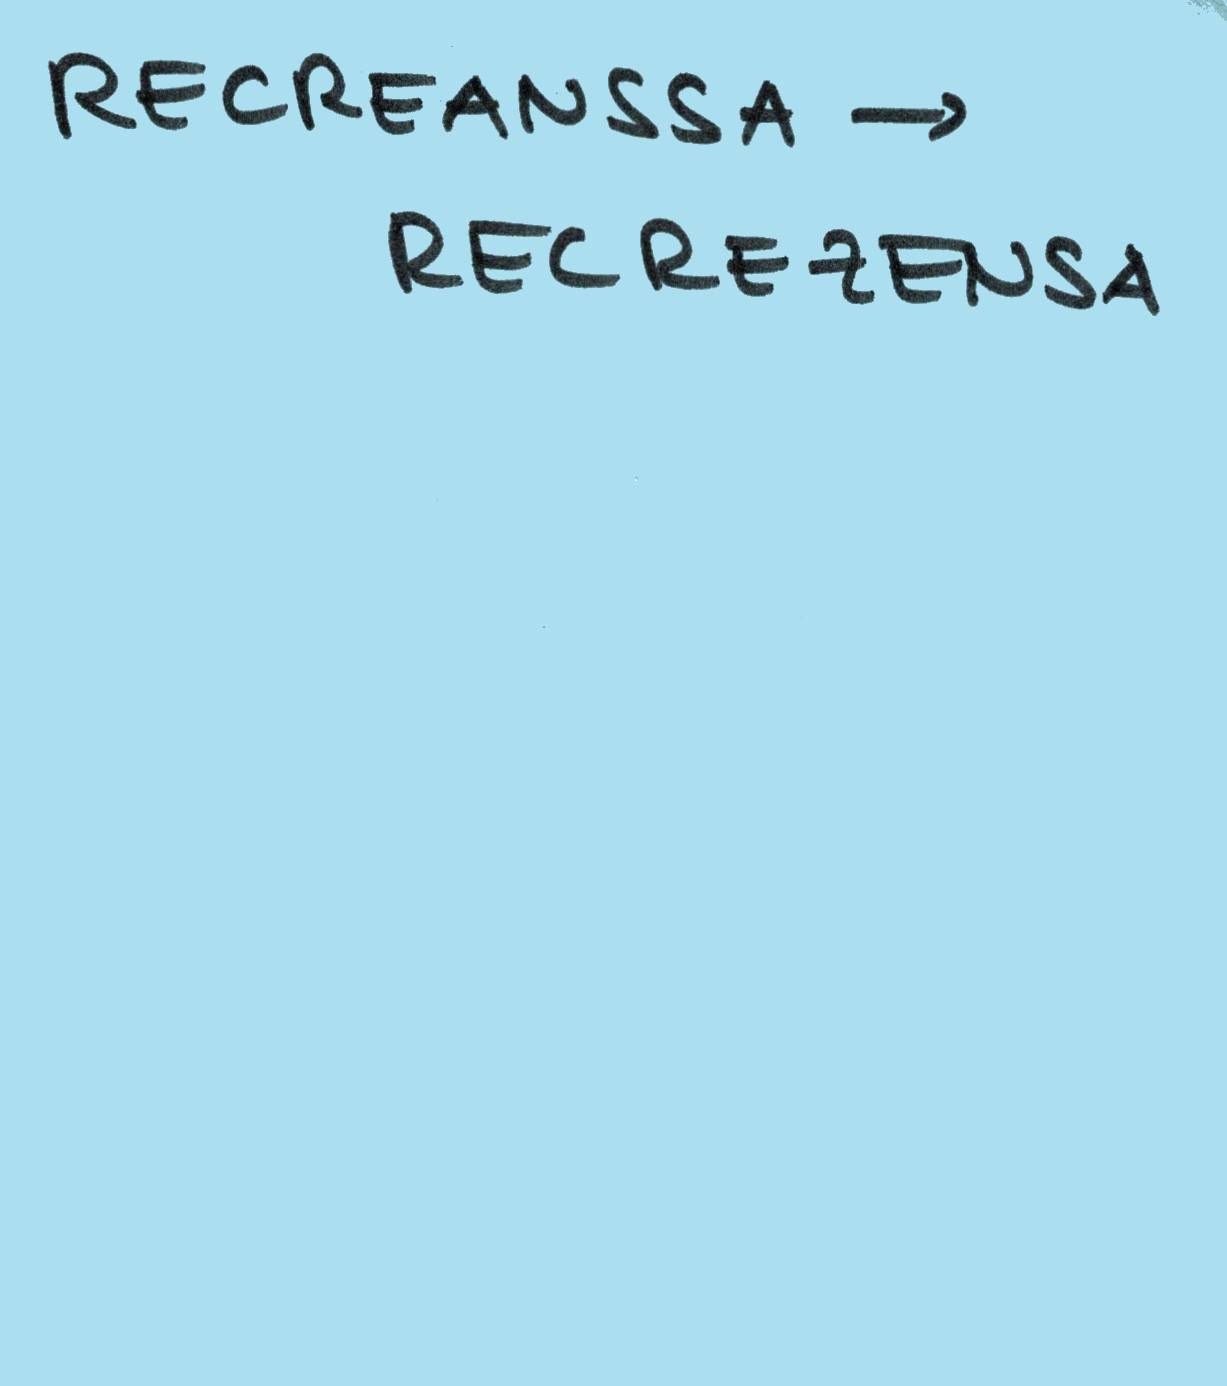 RECREANSSA →
RECREZENSA